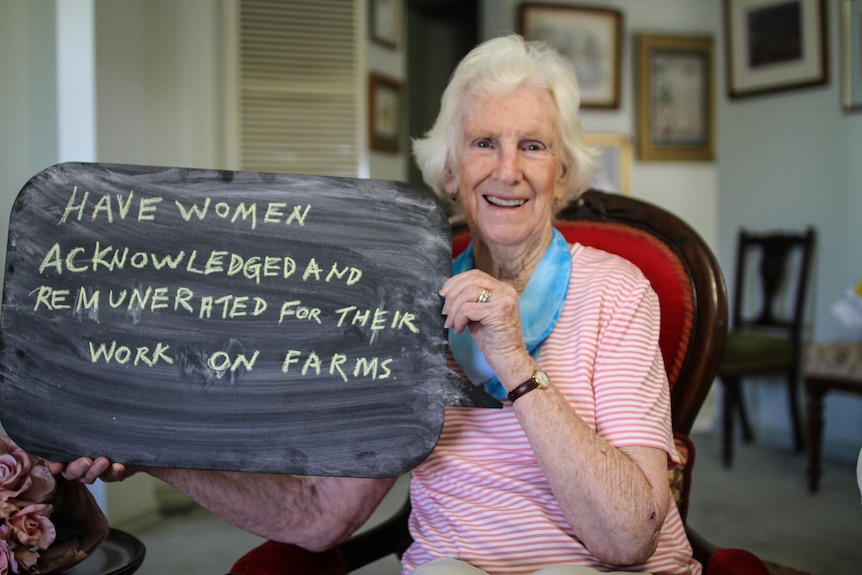 HAVE WOMEN
ACKNOWLEDGED AND
REMUNERATED FOR THEIR
WORK ON FARMS.